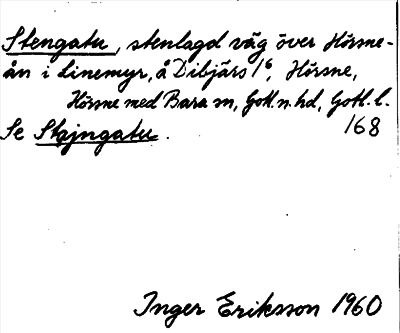 Stengatu, stenlagd väg över Hörsne-
ån i Linemyr, å Dibjärs 1⁶, Hörsne,
Hörsne med Bara sn, Gotl. n. hd, Gotl. l.
168
Se Stajngatu.
Inger Eriksson 1960